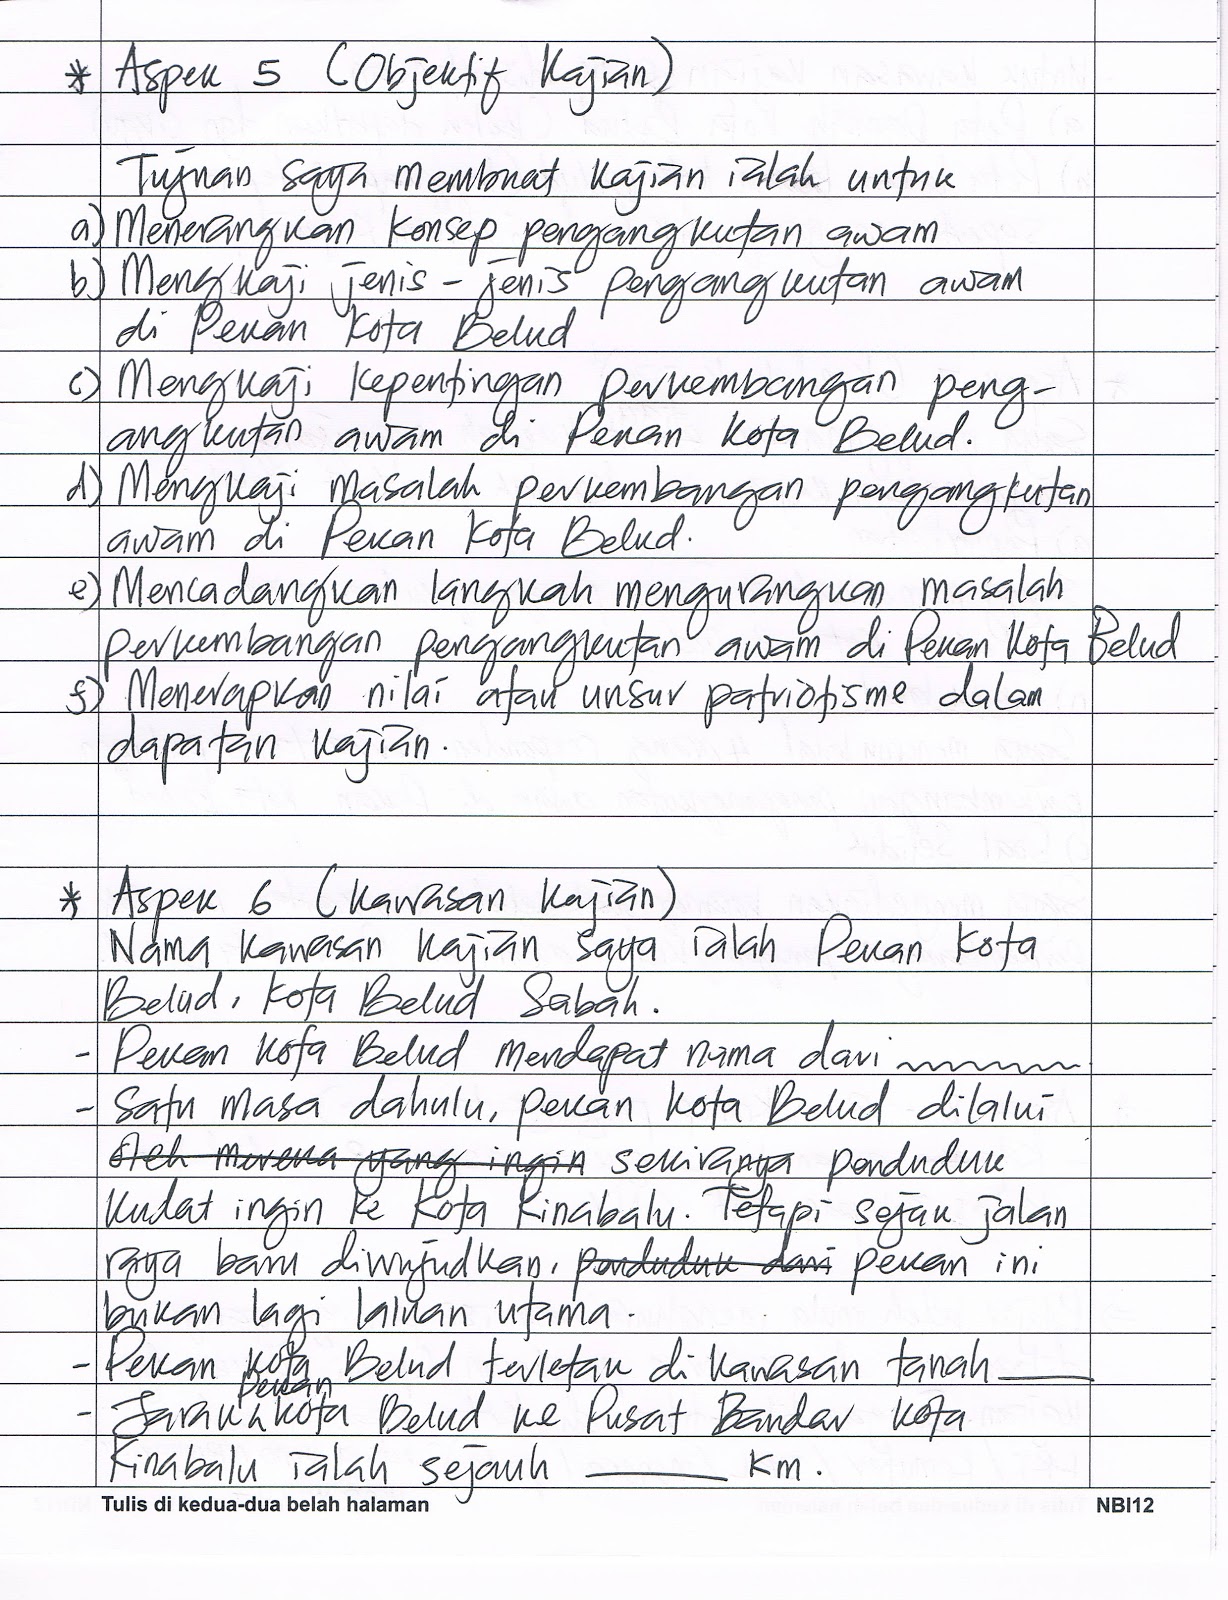 * Aspek 5 (Objektif Kajian)
Tujuan saya membuat kajian ialah untuk
a) Menerangkan konsep pengangkutan awam
b) Mengkaji jenis-jenis pengangkutan awam
di Pekan Kota Belud
c) Mengkaji kepentingan perkembangan peng-
angkutan awam di Pekan Kota Belud.
d) Mengkaji masalah perkembangan pengangkutan
awam di Pekan Kota Belud.
e) Mencadangkan langkah mengurangkan masalah
perkembangan pengangkutan awam di Pekan Kota Belud
f) Menerapkan nilai atau unsur patriotisme dalam
dapatan kajian.
* Aspek 6 (Kawasan Kajian)
Nama kawasan kajian saya ialah Pekan Kota
Belud, Kota Belud Sabah.
- Pekan Kota Belud mendapat nama dari
- Satu masa dahulu, pekan Kota Belud dilalui
oleh mereka yang ingin sekiranya penduduk
Kudat ingin ke Kota Kinabalu. Tetapi sejak jalan
raya baru diwujudkan, penduduk dari pekan ini
bukan lagi laluan utama.
- Pekan Kota Belud terletak di kawasan tanah ____
- Jarak pekan Kota Belud ke Pusat Bandar Kota
Kinabalu ialah sejauh ____ Km.
Tulis di kedua-dua belah halaman NBI12